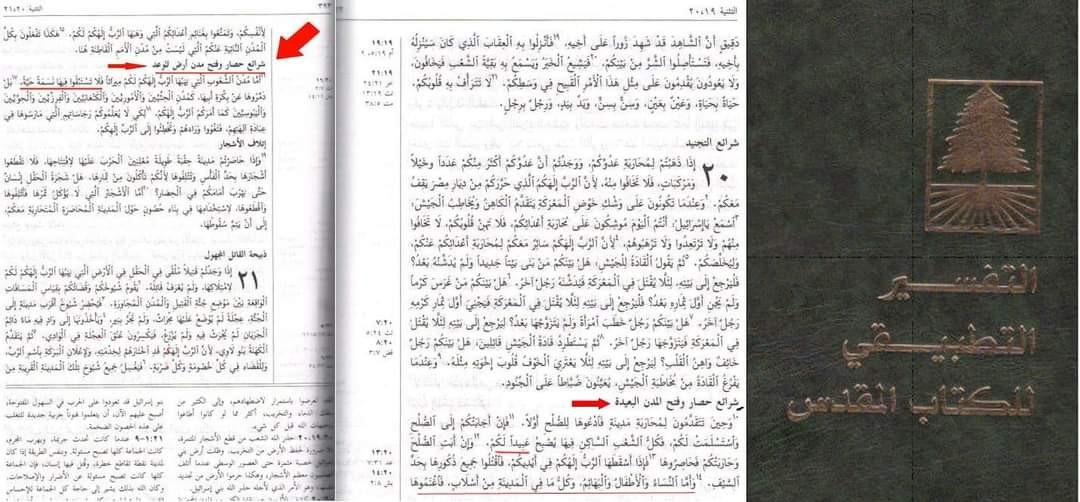 التثنية ٢٠،١٩
دقيق أن الشاهد قد شهد زوراً على أخيه، ١٩فأنزلوا به العقاب الذي كان سينزله
بأخيه، فتستأصلوا الشر من بينكم، ٢٠فيشيع الخبر ويسمع به بقية الشعب فيخافون،
ولا يعودون يقدمون على مثل هذا الأمر القبيح في وسطكم. ٢١لا تترأف به قلوبكم.
حياة بحياة، وعين بعين، وسن بسن، ويد بيد، ورجل برجل.
شرائع التجنيد
٢٠ إذا ذهبتم لمحاربة عدوكم، ووجدتم أن عدوكم أكثر منكم عدداً وخيلاً
ومركبات، فلا تخافوا منه، لأن الرب إلهكم الذي حرركم من ديار مصر يقف
معكم. ٢وعندما تكونون على وشك خوض المعركة يتقدم الكاهن ويخاطب الجيش:
٣اسمع ياإسرائيل، أنتم اليوم موشكون على محاربة أعدائكم، فلا تهن قلوبكم. لا تخافوا
منهم ولا ترتعدوا ولا ترهبوهم. ٤لأن الرب إلهكم سائر معكم لمحاربة أعدائكم عنكم،
وليخلصكم. ٥ثم يقول القادة للجيش: هل منكم من بنى بيتاً جديداً ولم يدشنه بعد؟
فليرجع إلى بيته لئلا يقتل في المعركة فيدشنه رجل آخر. ٦هل بينكم من غرس كرماً
ولم يجن أول ثماره بعد؟ فليرجع إلى بيته لئلا يقتل في المعركة فيجني أول ثمار كرمه
رجل آخر. ٧هل بينكم رجل خطب امرأة ولم يتزوجها بعد؟ ليرجع إلى بيته لئلا يقتل
في المعركة فيتزوجها رجل آخر. ٨ثم يستطرد قادة الجيش قائلين: هل بينكم رجل
خائف واهن القلب؟ ليرجع إلى بيته لئلا يعتري الخوف قلوب إخوته مثله. ٩وعندما
يفرغ القادة من مخاطبة الجيش، يعينون ضباطاً على الجنود.
شرائع حصار وفتح المدن البعيدة
١٠وحين تتقدمون لمحاربة مدينة فادعوها للصلح أولاً. ١١فإن أجابتكم إلى الصلح
واستسلمت لكم، فكل الشعب الساكن فيها يصبح عبيداً لكم. ١٢وإن أبت الصلح
وحاربتكم فحاصروها ١٣فإذا أسقطها الرب إلهكم في أيديكم، فاقتلوا جميع ذكورها بحد
السيف. ١٤وأما النساء والأطفال والبهائم، وكل ما في المدينة من أسلاب، فاغنموها
٣٩٣ التثنية ٢١،٢٠
لأنفسكم، وتمتعوا بغنائم أعدائكم التي وهبها الرب إلهكم لكم. ١٥هكذا تفعلون بكل
المدن النائية عنكم التي ليست من مدن الأمم القاطنة هنا.
شرائع حصار وفتح مدن أرض الموعد
١٦أما مدن الشعوب التي يهبها الرب إلهكم لكم ميراثاً فلا تستبقوا فيها نسمة حية، ١٧بل
دمروها عن بكرة أبيها، كمدن الحثيين والأموريين والكنعانيين والفرزيين والحويين
واليبوسيين كما أمركم الرب إلهكم، ١٨لكي لا يعلموكم رجاساتهم التي مارسوها في
عبادة آلهتهم، فتغووا وراءهم وتخطئوا إلى الرب إلهكم.
إتلاف الأشجار
١٩وإذا حاصرتم مدينة حقبة طويلة معلنين الحرب عليها لافتتاحها، فلا تقطعوا
أشجارها بحد الفأس وتتلفوها لأنكم تأكلون من ثمارها. هل شجرة الحقل إنسان
حتى يهرب أمامكم في الحصار؟ ٢٠أما الأشجار التي لا يؤكل ثمرها فأتلفوها
واقطعوها، لاستخدامها في بناء حصون حول المدينة المحاصرة المتحاربة معكم،
إلى أن يتم سقوطها.
ذبيحة القاتل المجهول
٢١ إذا وجدتم قتيلاً ملقى في الحقل في الأرض التي يهبها الرب إلهكم لكم
لامتلاكها، ولم يعرف قاتله، ٢يقوم شيوخكم وقضاتكم بقياس المسافات
الواقعة بين موضع جثة القتيل والمدن المجاورة. ٣فيحضر شيوخ أقرب مدينة إلى
الجثة، عجلة لم يوضع عليها محراث، ولم تجر بنير، ٤ويأخذونها إلى واد فيه ماء دائم
الجريان لم يحرث فيه ولم يزرع، فيكسرون عنق العجلة في الوادي. ٥ثم يتقدم
الكهنة بنو لاوي، لأن الرب إلهكم قد اختارهم لخدمته، ولإعلان البركة باسم الرب،
وللقضاء في كل خصومة وكل ضربة. ٦فيغسل جميع شيوخ تلك المدينة القريبة من
التفسير
التطبيقي
للكتاب المقدس